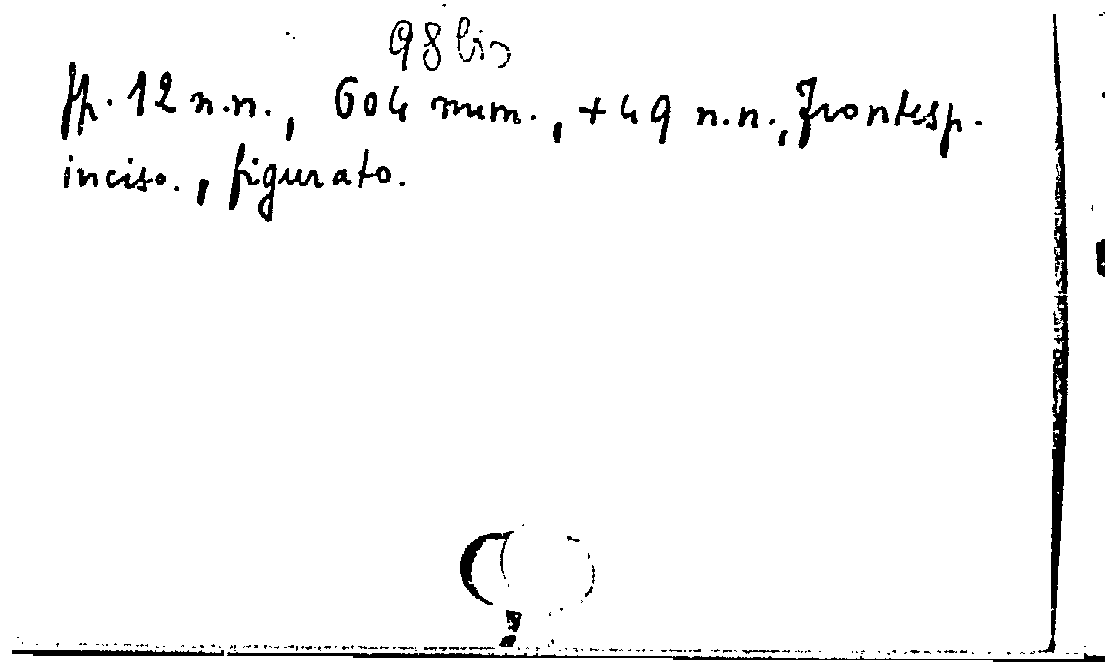 98 bis
pp. 12 n.n., 604 num., + 49 n.n., frontesp.
inciso., figurato.